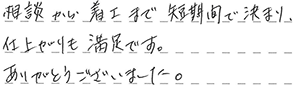 相談から着工まで短期間で決まり、
仕上がりも満足です。
ありがとうございました。